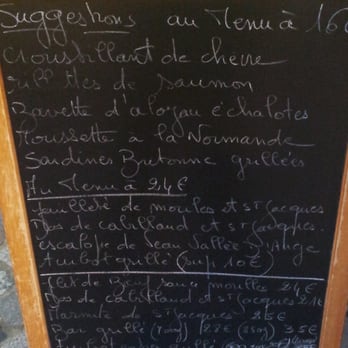 Suggestions au Menu à 16€
Croustillant de chèvre
rillettes de saumon
Bavette d'aloyau échalotes
Moussette à la Normande
Sardines Bretonne grillées
Au Menu à 24€
feuilleté de moules et St Jacques
Dos de cabillaud et St Jacques.
escalope de veau Vallée d'Auge
turbot grillé (sup 10€)
filet de Bœuf sauce morilles 24€
Dos de cabillaud et St Jacques 21€
Marmite de St Jacques 25€
Bar grillé 22€ 35€